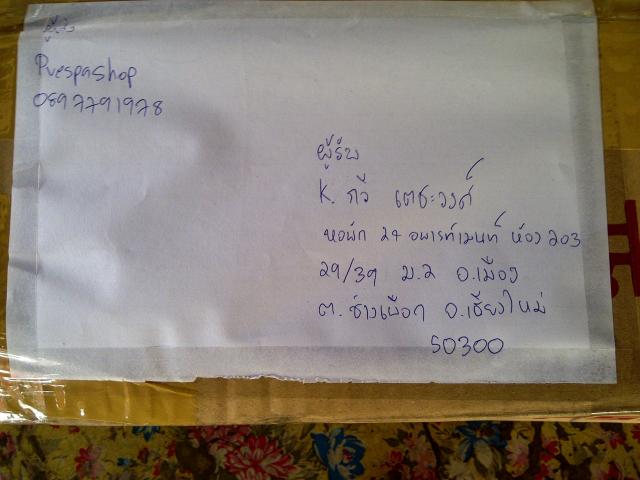 ผู้ส่ง
Pvespashop
0897791978
ผู้รับ
K. กวี เตชะวงศ์
หอพัก 24 อพารท์เมนท์ ห้อง 203
29/39 ม.2 อ.เมือง
ต.ช้างเผือก จ.เชียงใหม่
50300